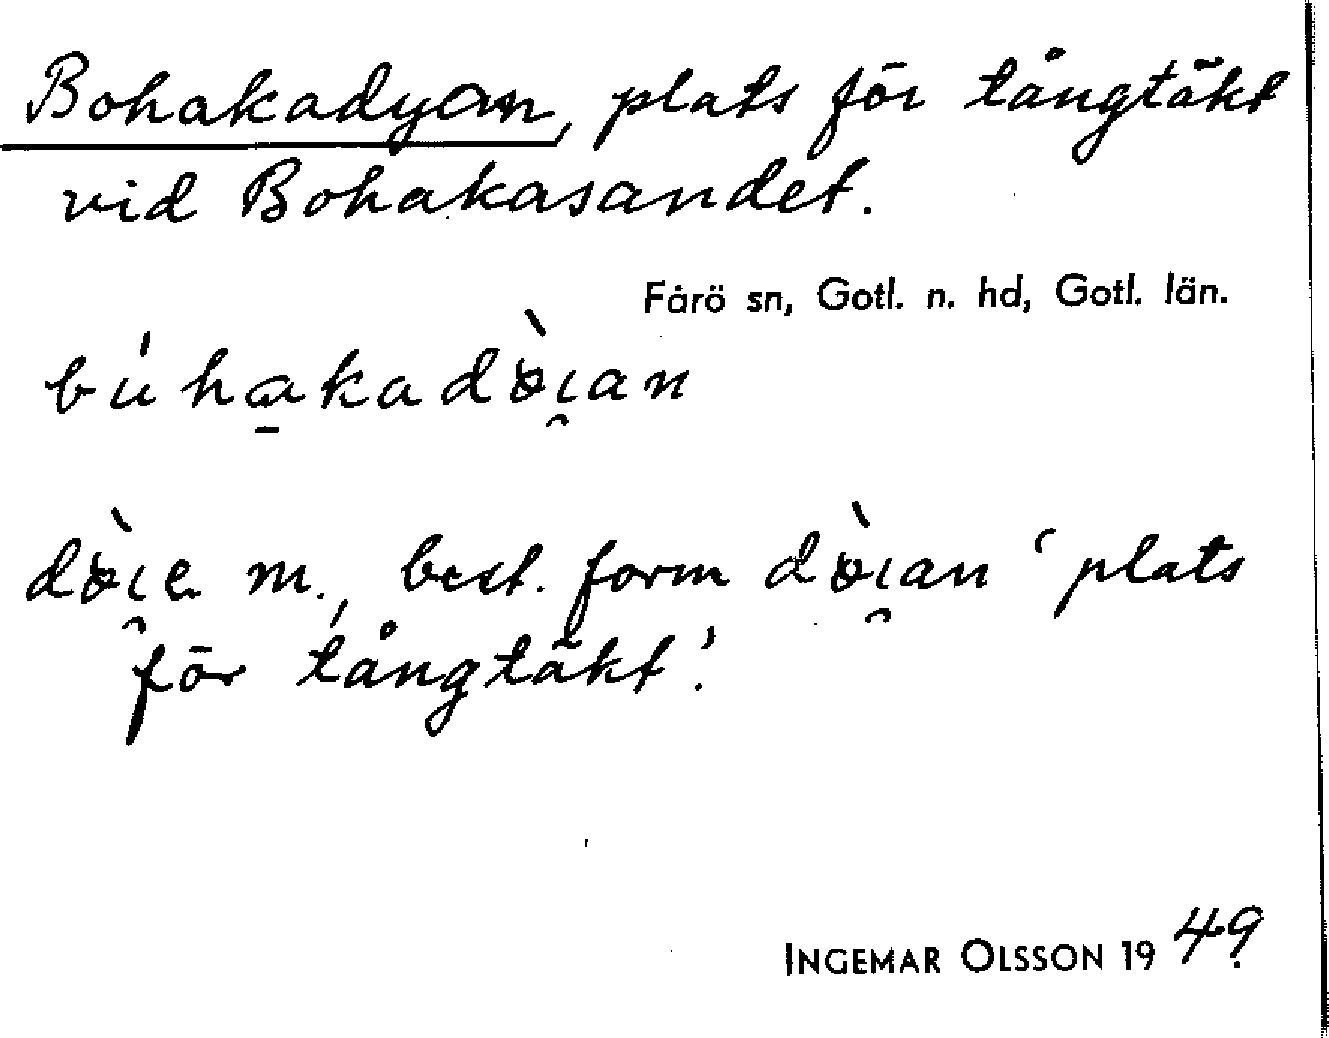 Bohakadyan, plats för tångtäkt
vid Bohakasandet.
Fårö sn, Gotl. n. hd, Gotl. län.
bu̍ha̱kadɵ̀ɩ̯an
dɵ̀ɩ̯e m., best. form dɵ̀ɩ̯an ‘plats
för tångtäkt’.
INGEMAR OLSSON 1949